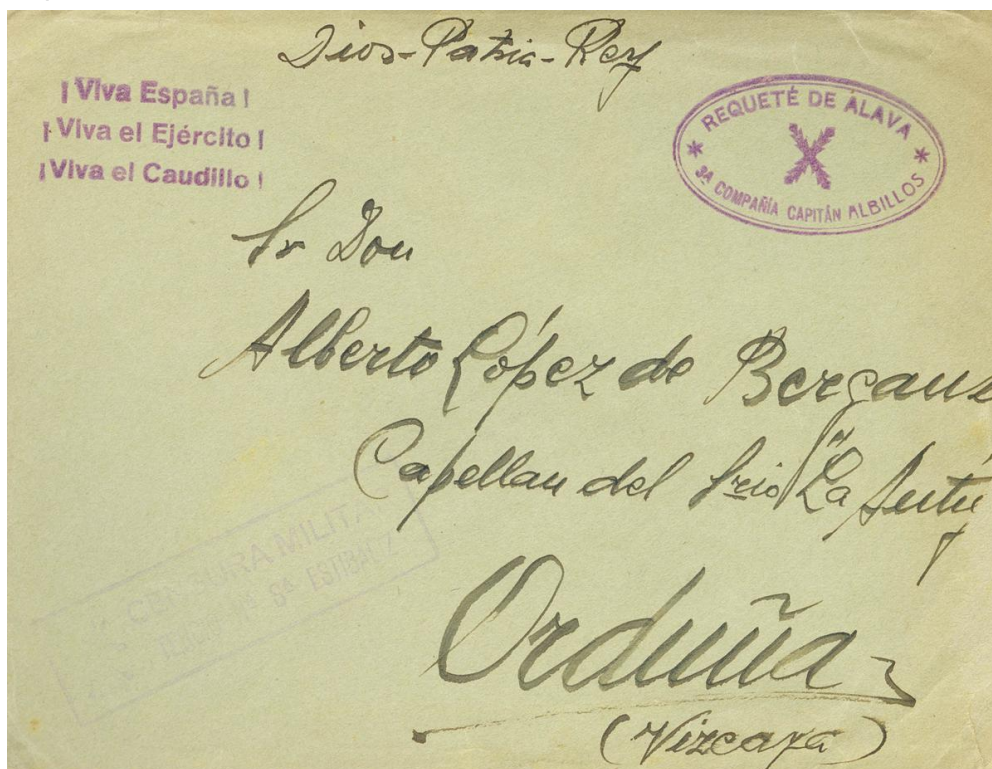 Dios-Patria-Rey
¡Viva España!
¡Viva el Ejército!
¡Viva el Caudillo!
REQUETÉ DE ÁLAVA
3ª COMPAÑÍA CAPITÁN ALBILLOS
Sr Don
Alberto López de Berganz
Capellan del Srio "La Antig
CENSURA MILITAR
Nª Sª ESTIBALIZ
Orduña
(Vizcaya)